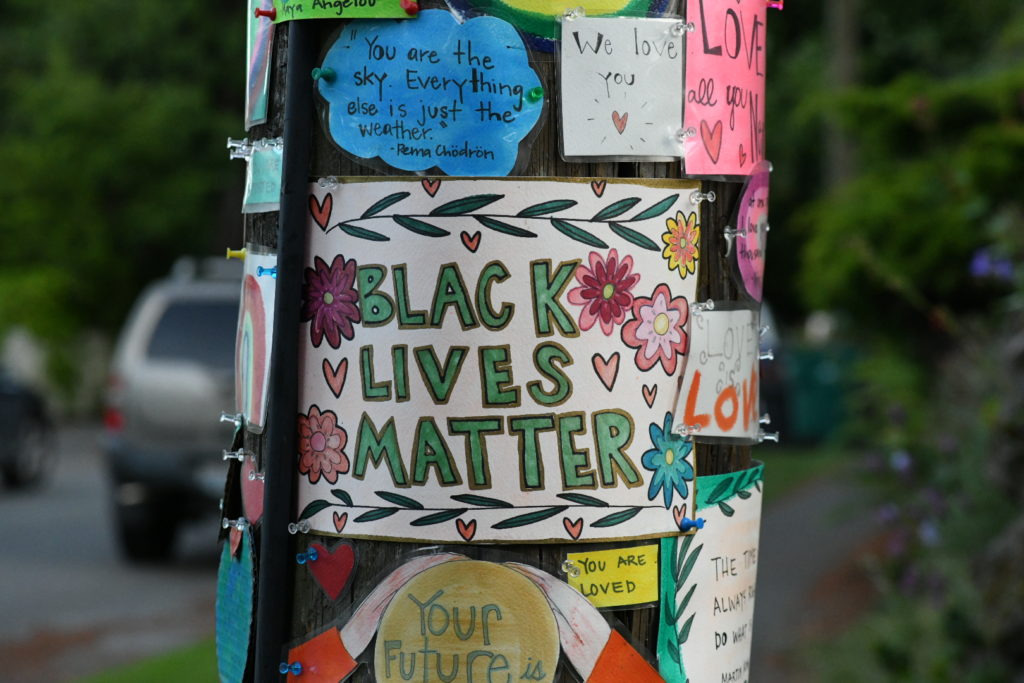 Maya Angelou
"You are the
sky. Everything
else is just the
weather."
-Pema Chödrön
We love
you
LOVE
all you
BLACK
LIVES
MATTER
LOVE
YOU ARE
LOVED
Your
Future is
THE TIME
ALWAYS
DO WHAT
MARTIN